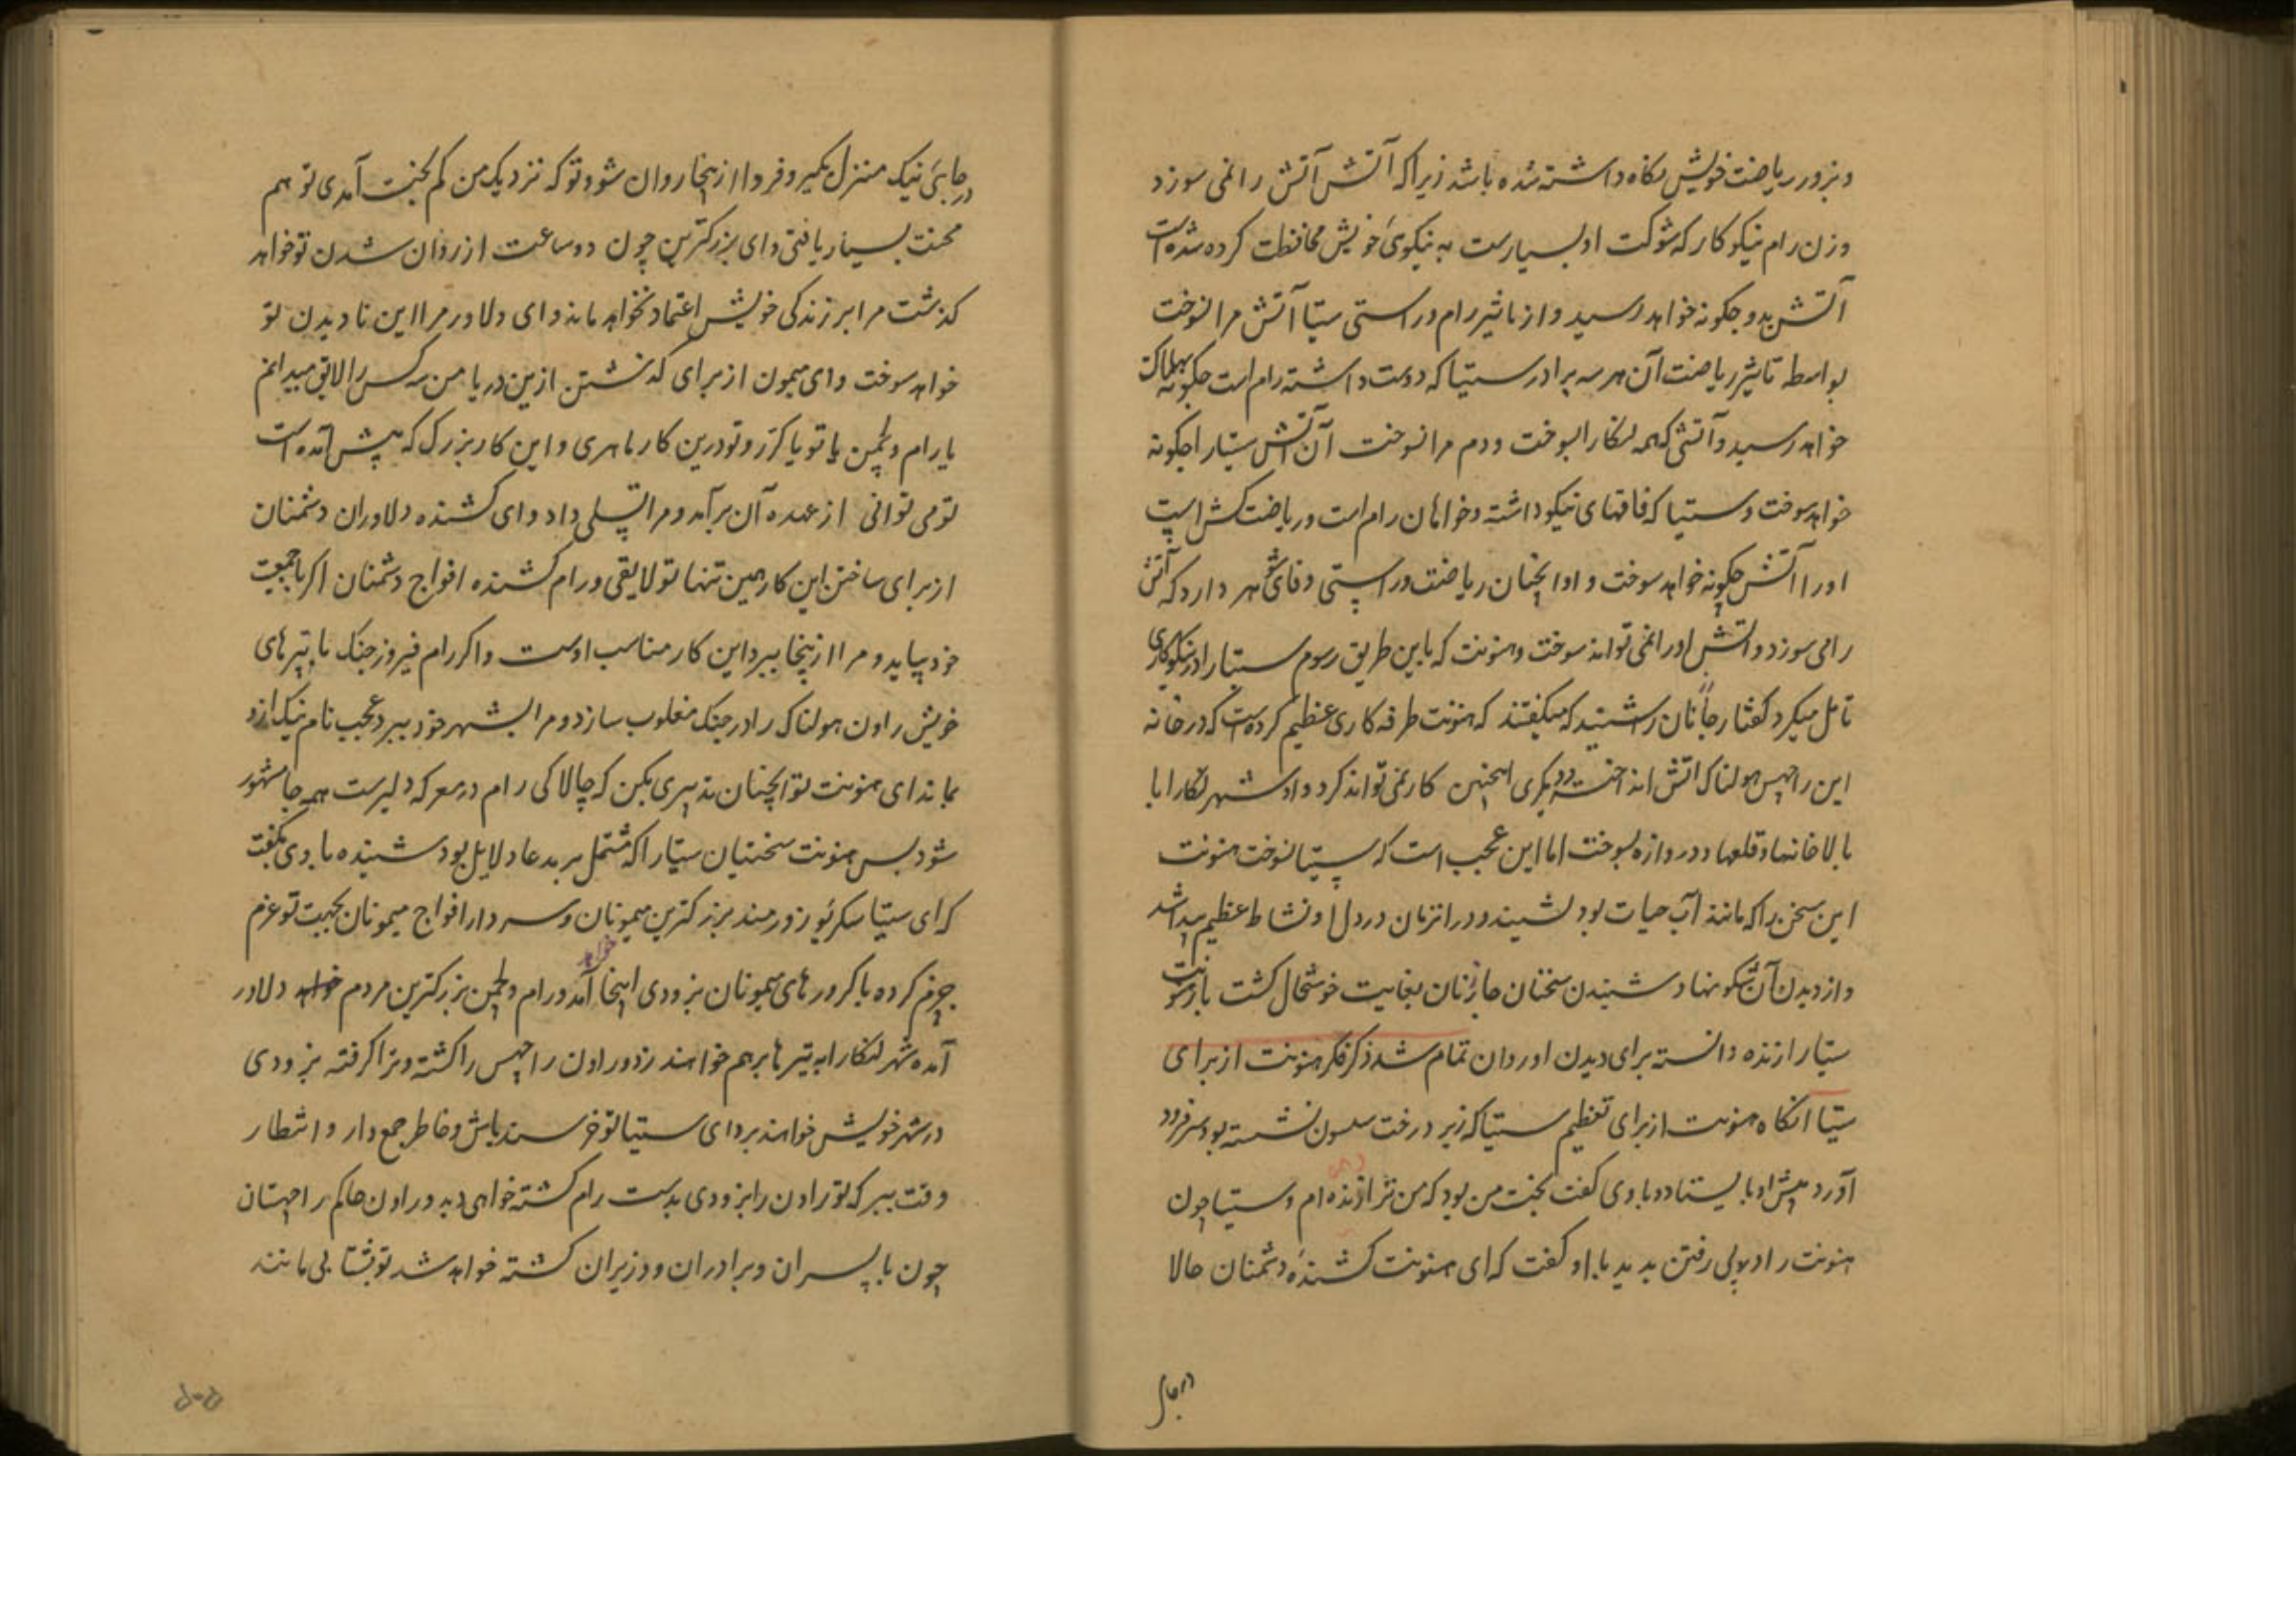 وبزور ریاضت خویش نکاه داشته شده باشد زیرا که آتش آتش را نمی سوزد
وزن رام نیکو کار که شوکت او بسیارست به نیکوئ خویش محافظت کرده شده است
آتش بدو چکونه خواهد رسید و از تاثیر رام و راستی سیتا آتش مرا نسوخت
بواسطه تاثیر ریاضت آن هر سه برادر سیتا که دوست داشته رام است چکونه بهلاکت
خواهد رسید و آتشی که همه لنکا را بسوخت و دم مرا نسوخت آن آتش سیتا را چکونه
خواهد سوخت و سیتا که فاقهای نیکو داشته و خواهان رام است و ریاضت کش است
او را آتش چکونه خواهد سوخت و او آنچنان ریاضت و راستی و وفای شوهر دارد که آتش
را می سوزد و آتش او را نمی تواند سوخت و هنونت که باین طریق رسوم سیتا را در نیکوکاری
تامل میکرد کفتار چارنان را شنید که میکفتند که هنونت طرفه کاری عظیم کرده است که در خانه
این راچهس هولناک آتش انداخت و دیکری اینچنین کار نمی تواند کرد و او شهر لنکا را با
بالا خانها و قلعها و دروازه بسوخت اما این عجب است که سیتا نسوخت هنونت
این سخن را که مانند آب حیات بود بشنید و در آنزمان در دل او نشاط عظیم پیدا شد
و از دیدن آن شکونها و شنیدن سخنان چارنان بغایت خوشحال کشت باز هنونت
سیتا را زنده دانسته برای دیدن او روان تمام شد ذکر فکر هنونت از برای
سیتا آنکاه هنونت از برای تعظیم سیتا که زیر درخت سسون نشسته بود سر فرود
آورد پیش او بایستاد و باوی کفت بخت من بود که من ترا زنده دیده ام و سیتا چون
هنونت را در پی رفتن بدید با او کفت که ای هنونت کشندهٔ دشمنان حالا
در جائ
در جائ نیک منزل بکیر و فردا از ینجا روان شو و تو که نزدیک من کم بخت آمدی تو هم
محنت بسیار یافتی و ای بزرکترین چون دو ساعت از روان شدن تو خواهد
کذشت مرا بر زندکی خویش اعتماد نخواهد ماند و ای دلاور مرا این نا دیدن تو
خواهد سوخت و ای میمون از برای کذشتن ازین دریا من سه کس را لایق میدانم
یا رام و لچمن یا تو یا کرر و تو درین کار ماهری و این کار بزرک که پیش آمده است
تو می توانی از عهده آن بر آمد و مرا تسلی داد و ای کشنده دلاوران دشمنان
از برای ساختن این کار همین تنها تو لایقی و رام کشنده افواج دشمنان اکر با جمعیت
خود بیاید و مرا از ینجا ببرد این کار مناسب اوست و اکر رام فیروز جنک با تیرهای
خویش راون هولناک را در جنک مغلوب سازد و مرا بشهر خود ببرد عجب نام نیک ازو
بماند ای هنونت تو آنچنان تدبیری بکن که چالاکی رام در معرکه دلیرست همه جا مشهور
شود پس هنونت سخنان سیتا را که مشتمل بر مدعا و دلایل بود شنیده با وی بکفت
که ای سیتا سکریو زورمند بزرکترین میمونان و سردار افواج میمونان بجهت تو عزم
جزم کرده با کرورهای میمونان بزودی اینجا خواهد آمد و رام و لچمن بزرکترین مردم دلاور
آمده شهر لنکا را به تیرها بر هم خواهند زد و راون راچهس را کشته و ترا کرفته بزودی
در شهر خویش خواهند برد ای سیتا تو خرسند باش و خاطر جمع دار و انتظار
وقت ببر که تو راون را بزودی بدست رام کشته خواهی دید و راون حاکم راچهسان
چون با پسران و برادران و وزیران کشته خواهد شد تو بشتابی مانند